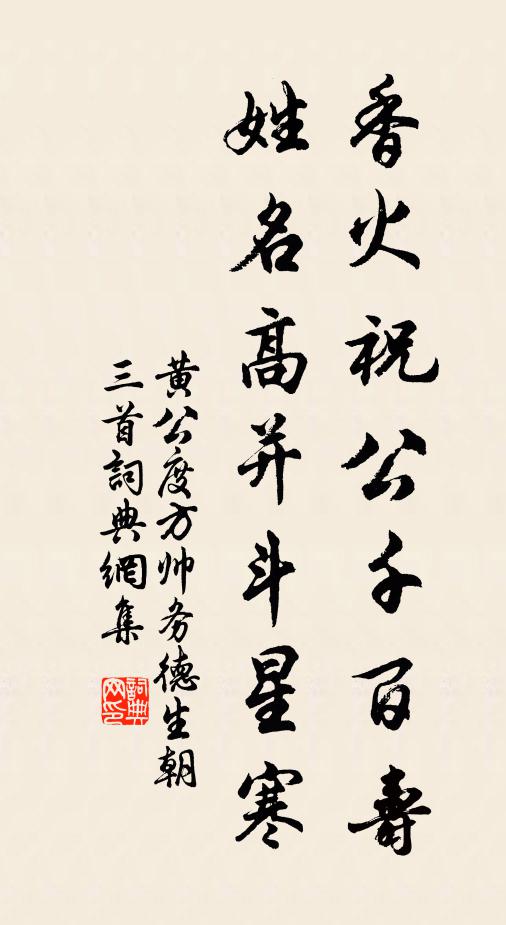 香火祝公千百壽
姓名高并斗星寒
黄公度方帅务德生朝
三首詞典網集
詞典网印